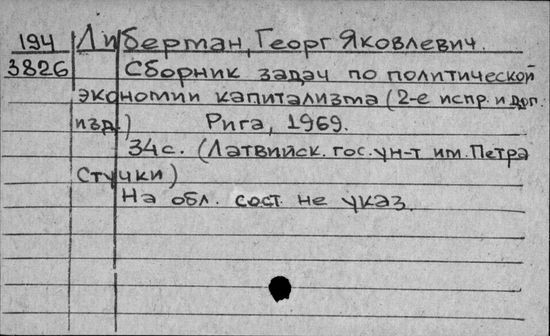 194 Либерман, Георг Яковлевич.
3826 Сборник задач по политической
экономии капитализма (2-е испр. и доп.
изд.) Рига, 1969.
34 с. (Латвийск. гос. ун-т им. Петра
Стучки)
На обл. сост. не указ.